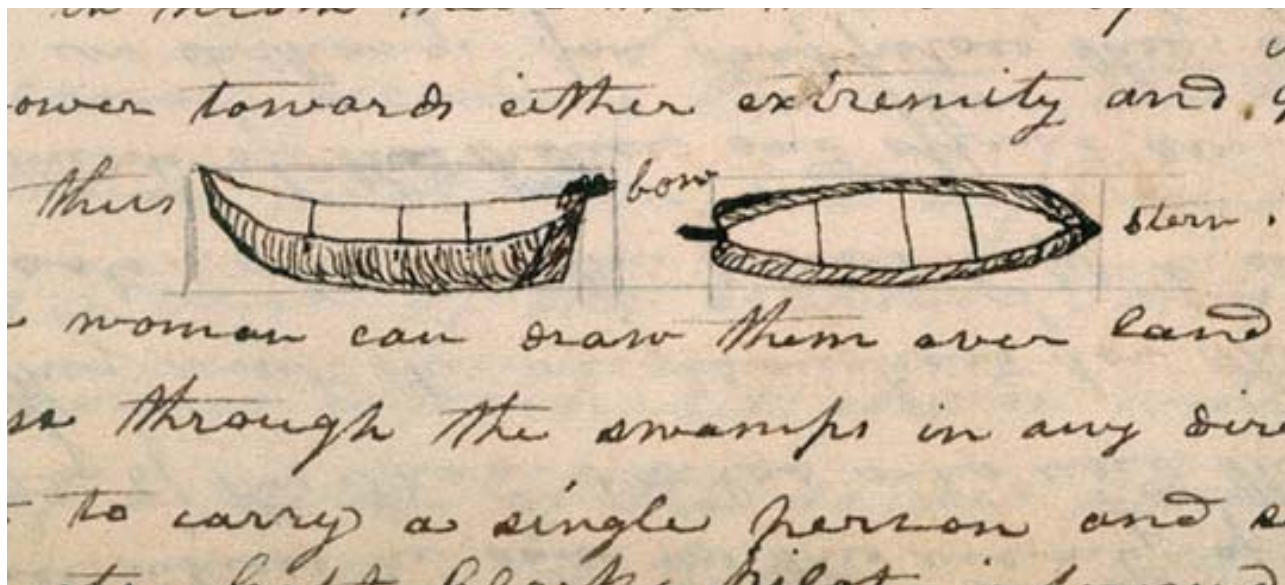 ower towards either extremity and
thus bow stern.
woman can draw them over land
through the swamps in any dire
to carry a single person and s